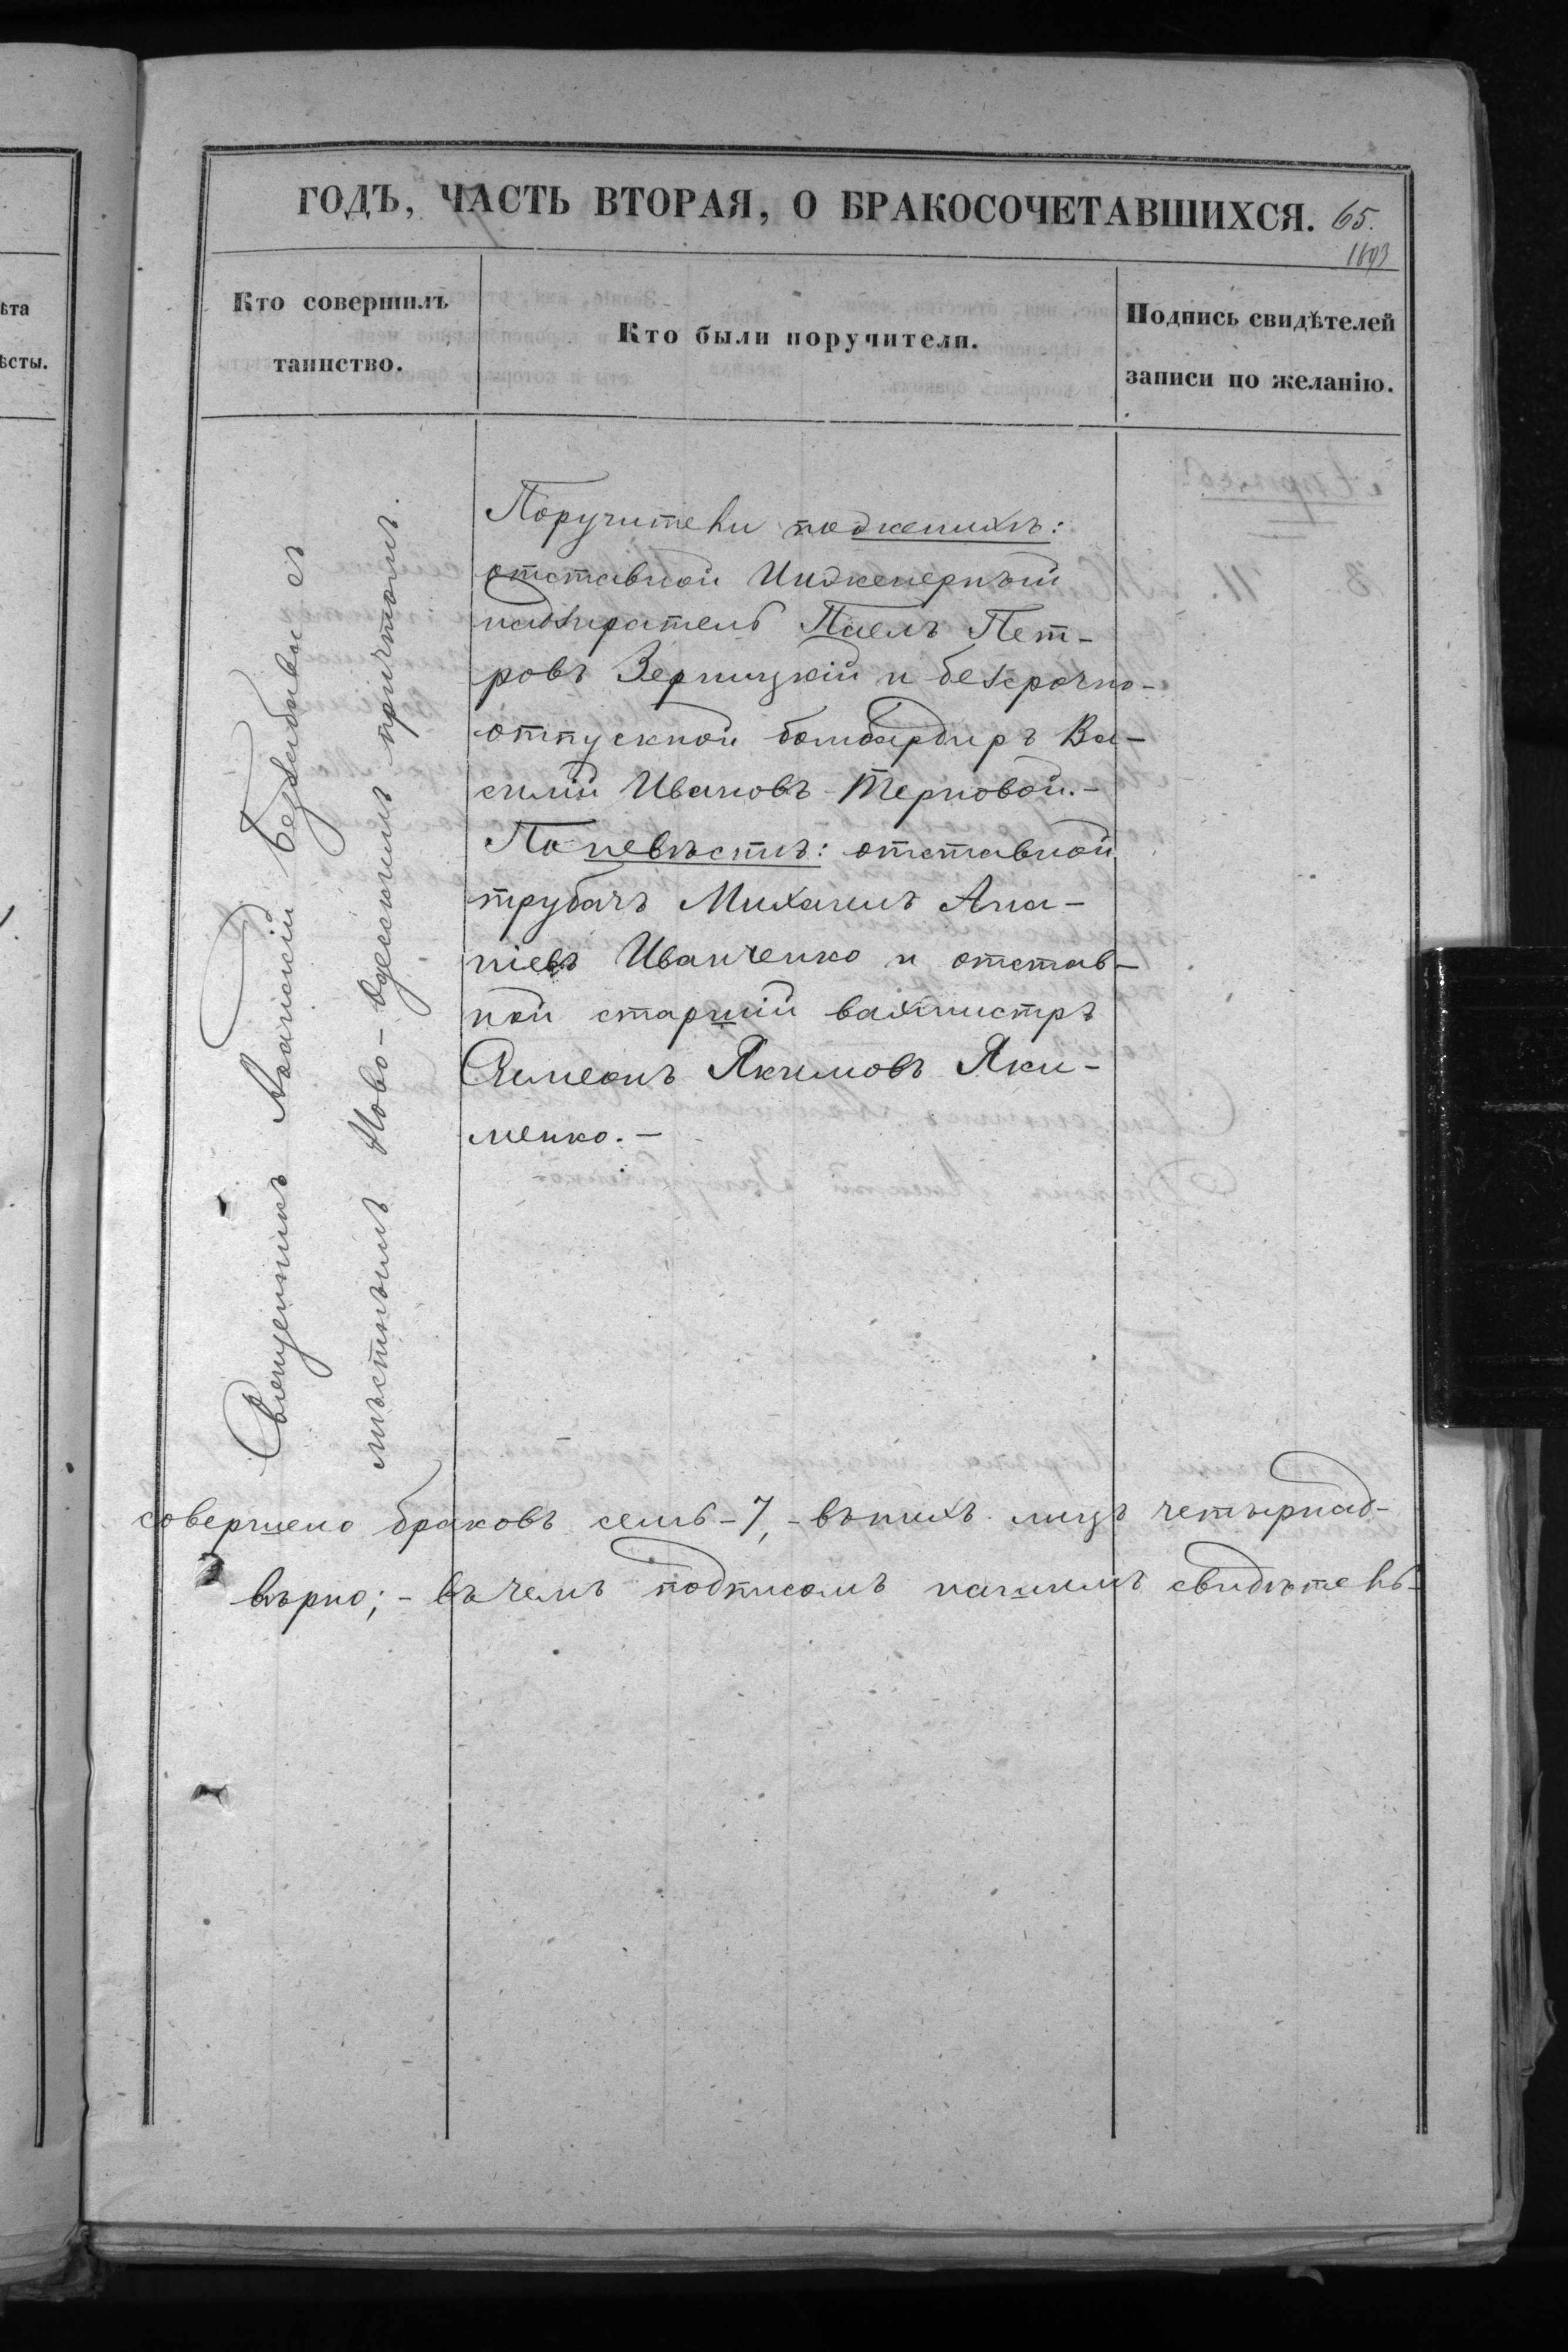 ГОДЪ, ЧАСТЬ ВТОРАЯ, О БРАКОСОЧЕТАВШИХСЯ. 65.
ѣта
ѣсты.
Кто совершилъ
таинство.
Кто были поручители.
Подпись свидѣтелей
записи по желанію.
Священникъ Безабавы съ
мѣстнымъ Ново-Одесскимъ причтомъ.
Поручители по женихѣ:
отставной Инженерный
надзиратель Паелъ Пет-
ровъ Зерницкій и безсрочно-
отпускной бомбардиръ Ва-
силій Ивановъ Терновой.-
По невѣстѣ: отставной
трубачъ Михаилъ Ана-
ніевъ Иванченко и отстав-
ной старшій вахмистръ
Симеонъ Якимовъ Яки-
менко.-
совершено браковъ семь-7,-въ нихъ лицъ четырнад-
вѣрно;- въ чемъ подписомъ нашимъ свидѣтель-